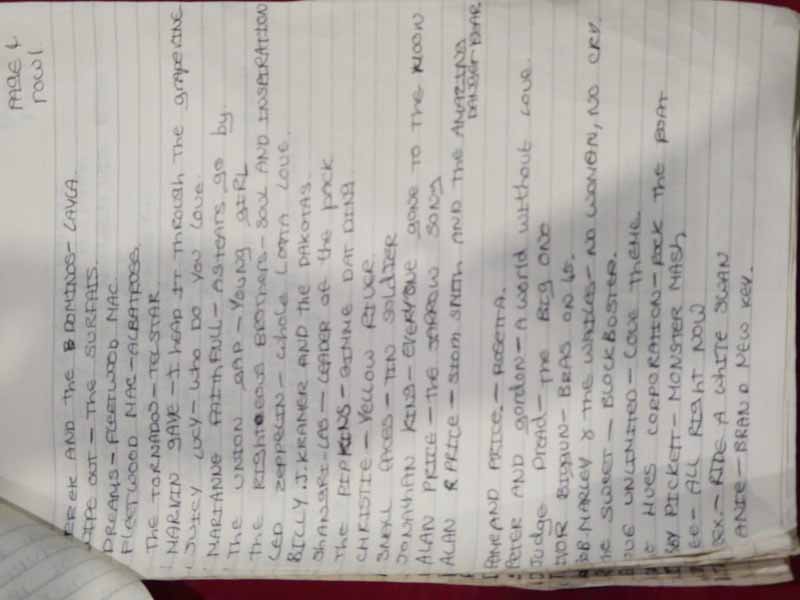 PAGE 4
ROW 1
EREK AND THE DOMINOS - LAYLA.
WIPE OUT - THE SURFAIS.
DREAMS - FLEETWOOD MAC.
FLEETWOOD MAC - ALBATROSS.
THE TORNADOS - TELSTAR.
MARVIN GAYE - I HEAD IT THROUGH THE GRAPEVINE
JUICY LUCY - WHO DO YOU LOVE.
MARIANNE FAITHFULL - AS TEARS GO by.
THE UNION GAP - YOUNG GIRL
THE RIGHTEOUS BROTHERS - SOUL AND INSPIRATION
LED ZEPPELIN - WHOLE LOTTA LOVE.
BILLY J. KRAMER AND THE DAKOTAS.
SHANGRI-LAS - LEADER OF THE PACK
THE PIPKINS - GIMME DAT DING
CHRISTIE - YELLOW RIVER.
SMALL FACES - TIN SOLDIER
JONATHAN KING - EVERYONE GONE TO THE MOON
ALAN PRICE - THE JARROW SONG
ALAN PRICE - SIOM SMITH AND THE AMAZING
DANCER BEAR
FAME AND PRICE. - ROSETTA.
PETER AND gordon - A world without LOVE.
Judge Dread - THE BIG ONE
IVOR BIGGUN - BRAS ON 45.
BOB MARLEY & THE WAILES - NO WOMEN, NO CRY.
HE SWEET - BLOCKBOSTER.
OVE UNLIMITED - LOVE THEME.
E HUES CORPORATION - ROCK THE BOAT
BBY PICKETT - MONSTER MASH
EE - ALL RIGHT NOW
REX. - RIDE A WHITE SWAN
ANIE - BRAND NEW KEY.